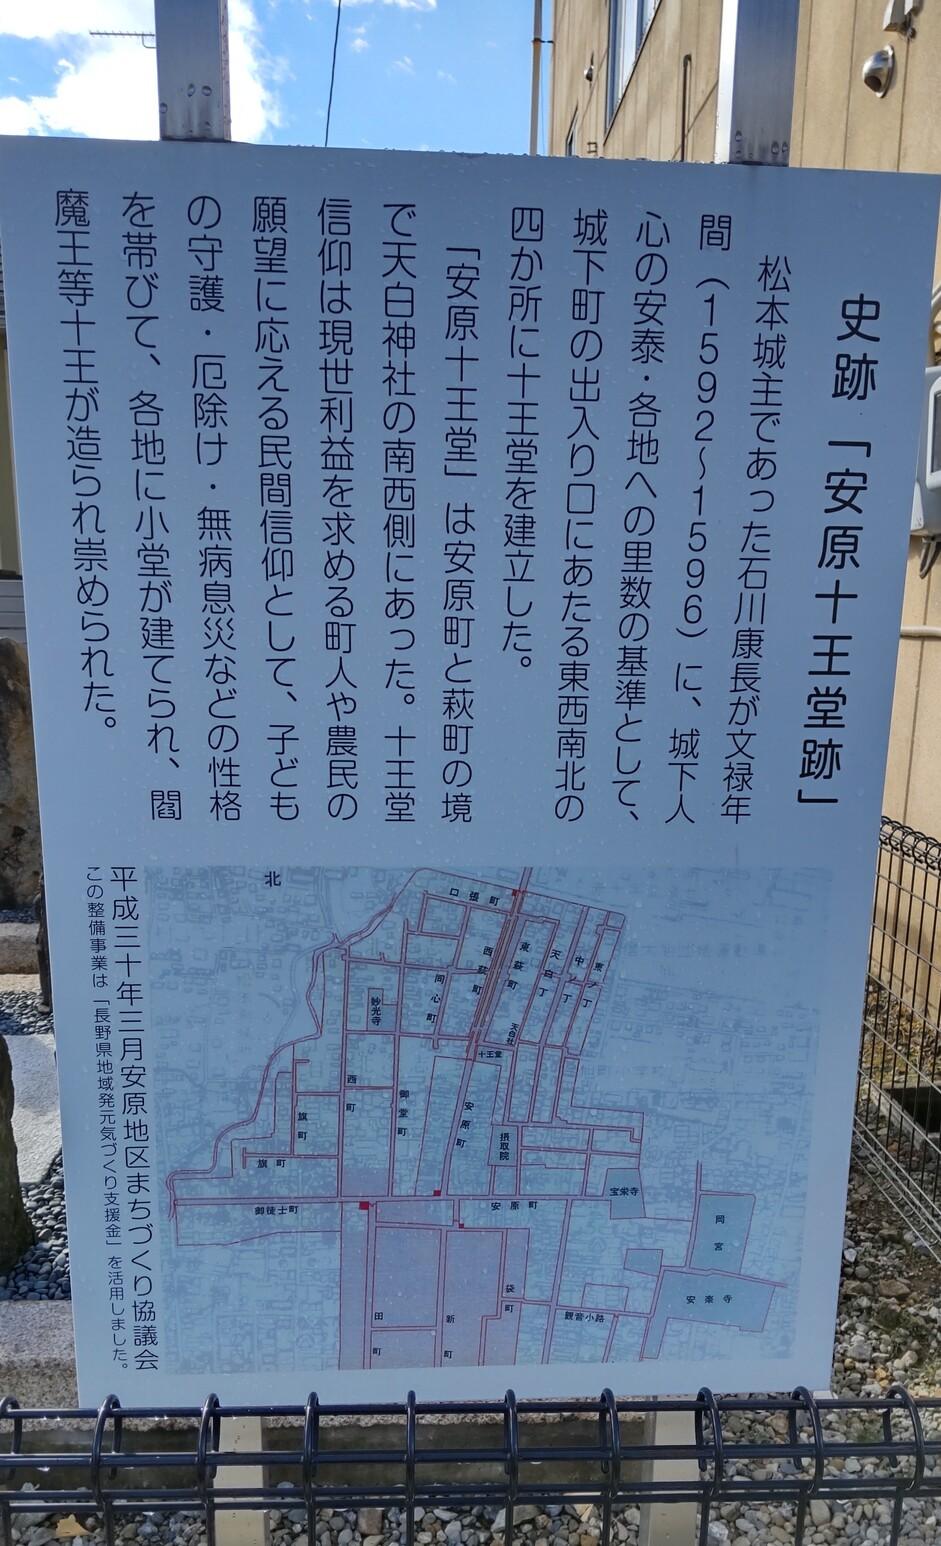 史跡「安原十王堂跡」
松本城主であった石川康長が文禄年
間（1592～1596）に、城下人
心の安泰・各地への里数の基準として、
城下町の出入り口にあたる東西南北の
四か所に十王堂を建立した。
「安原十王堂」は安原町と萩町の境
で天白神社の南西側にあった。十王堂
信仰は現世利益を求める町人や農民の
願望に応える民間信仰として、子ども
の守護・厄除け・無病息災などの性格
を帯びて、各地に小堂が建てられ、閻
魔王等十王が造られ崇められた。
北
口張町
西萩町
東萩町
天白丁
中ノ丁
東ノ丁
同心町
妙光寺
天白社
十王堂
西町
御堂町
安原町
旗町
摂取院
旗町
宝栄寺
御徒士町
安原町
岡宮
安楽寺
袋町
観音小路
田町
新町
平成三十年三月安原地区まちづくり協議会
この整備事業は「長野県地域発元気づくり支援金」を活用しました。